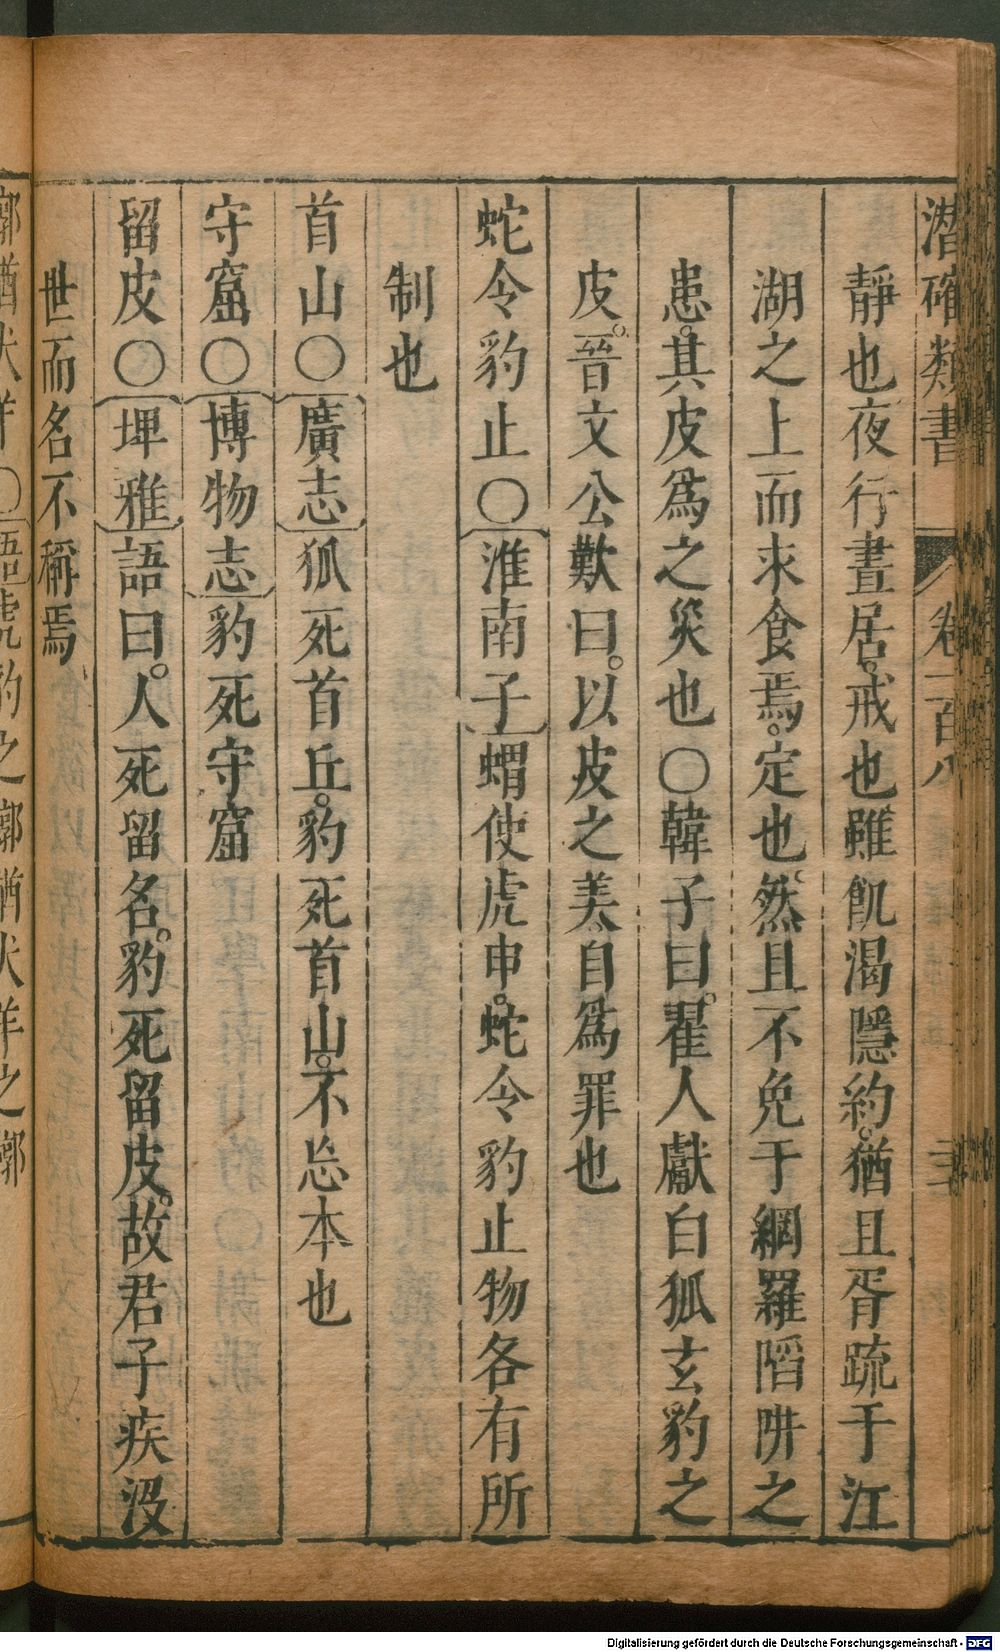 潛確類書 卷一百八
靜也夜行晝居。戒也雖飢渴隱約。猶且胥疏于江
湖之上而求食焉。定也。然且不免于網羅陷阱之
患。其皮爲之災也〇韓子曰。翟人獻白狐玄豹之
皮。晉文公歎曰。以皮之美自爲罪也
蛇令豹止〇淮南子蝟使虎申。蛇令豹止物各有所
制也
首山〇廣志狐死首丘。豹死首山。不忘本也
守窟〇博物志豹死守窟
留皮〇埤雅語曰。人死留名。豹死留皮。故君子疾沒
世而名不稱焉
鄭猶犬羊〇語虎豹之鞹猶犬羊之鞹
Digitalisierung gefördert durch die Deutsche Forschungsgemeinschaft - DFG